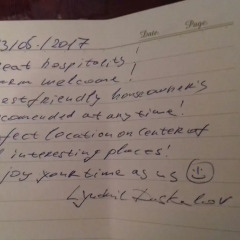 Date. Page.
3/06.2017
eat hospitality!
arm welcome!
est friendly houseowner's
comended at any time!
fect location on center of
interesting places!
joy your time as us